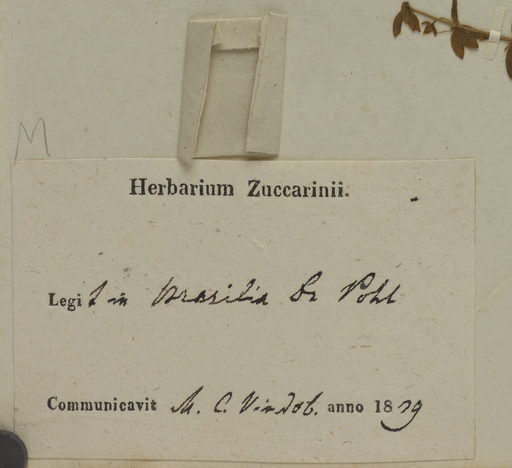 M
Herbarium Zuccarinii.
Legit in Brasilia Dr Pohl
Communicavit M. C. Vindob. anno 1839